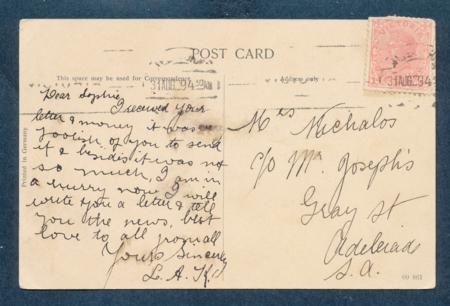 POST CARD
This space may be used for Correspondence
Address only
31 AUG
31 AUG
Printed in Germany
Dear Sophie
I received your
letter & money it was
foolish of you to send
it & besides it was not
so much, I am in
a hurry now I will
write you a letter & tell
you the news, best
love to all from all
Yours Sincerely
L. A. K
Mrs Nicholos
c/o Mr Joseph's
Gray st
Adelaid
S. A.